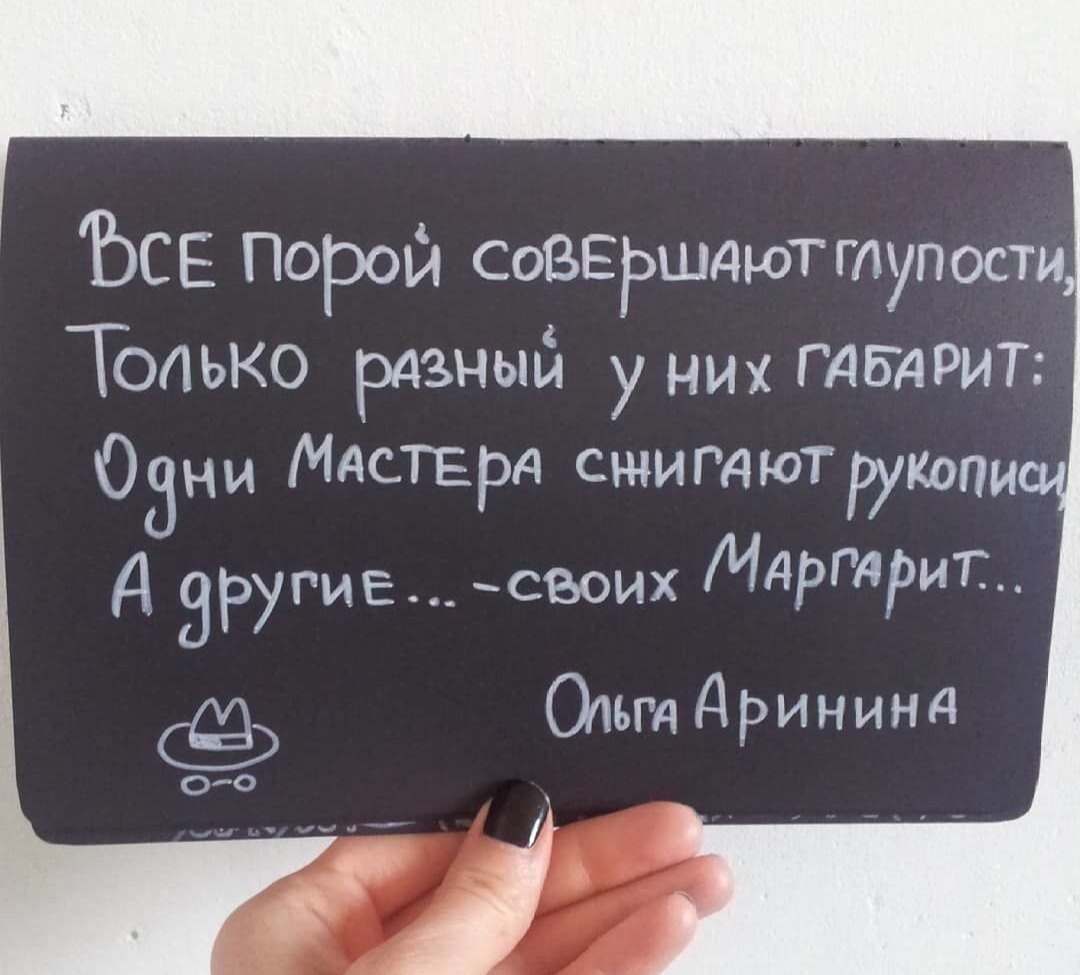 Все порой совершают глупости,
Только разный у них габарит:
Одни Мастера сжигают рукописи,
А другие... - своих Маргарит...
Ольга Аринина